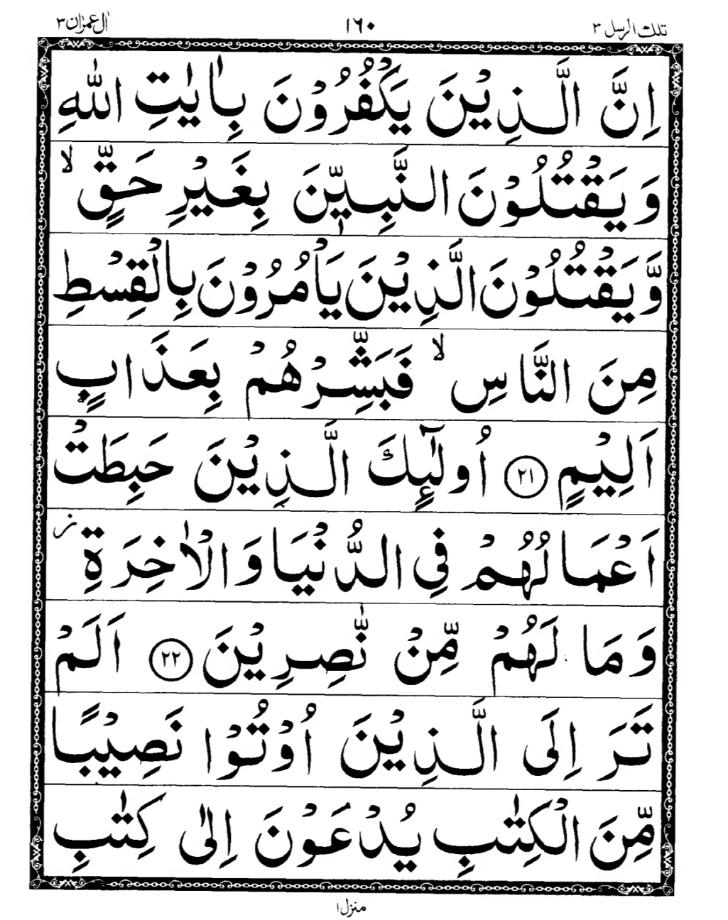 تلك الرسل ٣ ١٦٠ اٰل عمران ٣
اِنَّ الَّذِيْنَ يَكْفُرُوْنَ بِاٰيٰتِ اللّٰهِ
وَيَقْتُلُوْنَ النَّبِيّٖنَ بِغَيْرِ حَقٍّ ۙ
وَّيَقْتُلُوْنَ الَّذِيْنَ يَاْمُرُوْنَ بِالْقِسْطِ
مِنَ النَّاسِ ۙ فَبَشِّرْهُمْ بِعَذَابٍ
اَلِيْمٍ ﴿٢١﴾ اُولٰٓئِكَ الَّذِيْنَ حَبِطَتْ
اَعْمَالُهُمْ فِي الدُّنْيَا وَالْاٰخِرَةِ ز
وَمَا لَهُمْ مِّنْ نّٰصِرِيْنَ ﴿٢٢﴾ اَلَمْ
تَرَ اِلَى الَّذِيْنَ اُوْتُوْا نَصِيْبًا
مِّنَ الْكِتٰبِ يُدْعَوْنَ اِلٰى كِتٰبِ
منزل ١